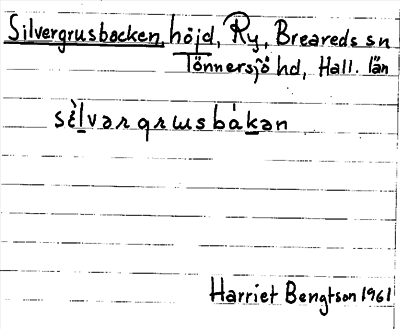 Silvergrusbacken, höjd, Ry, Breareds sn
Tönnersjö hd, Hall. län
sèlvərgrɯsbákən
Harriet Bengtson 1961